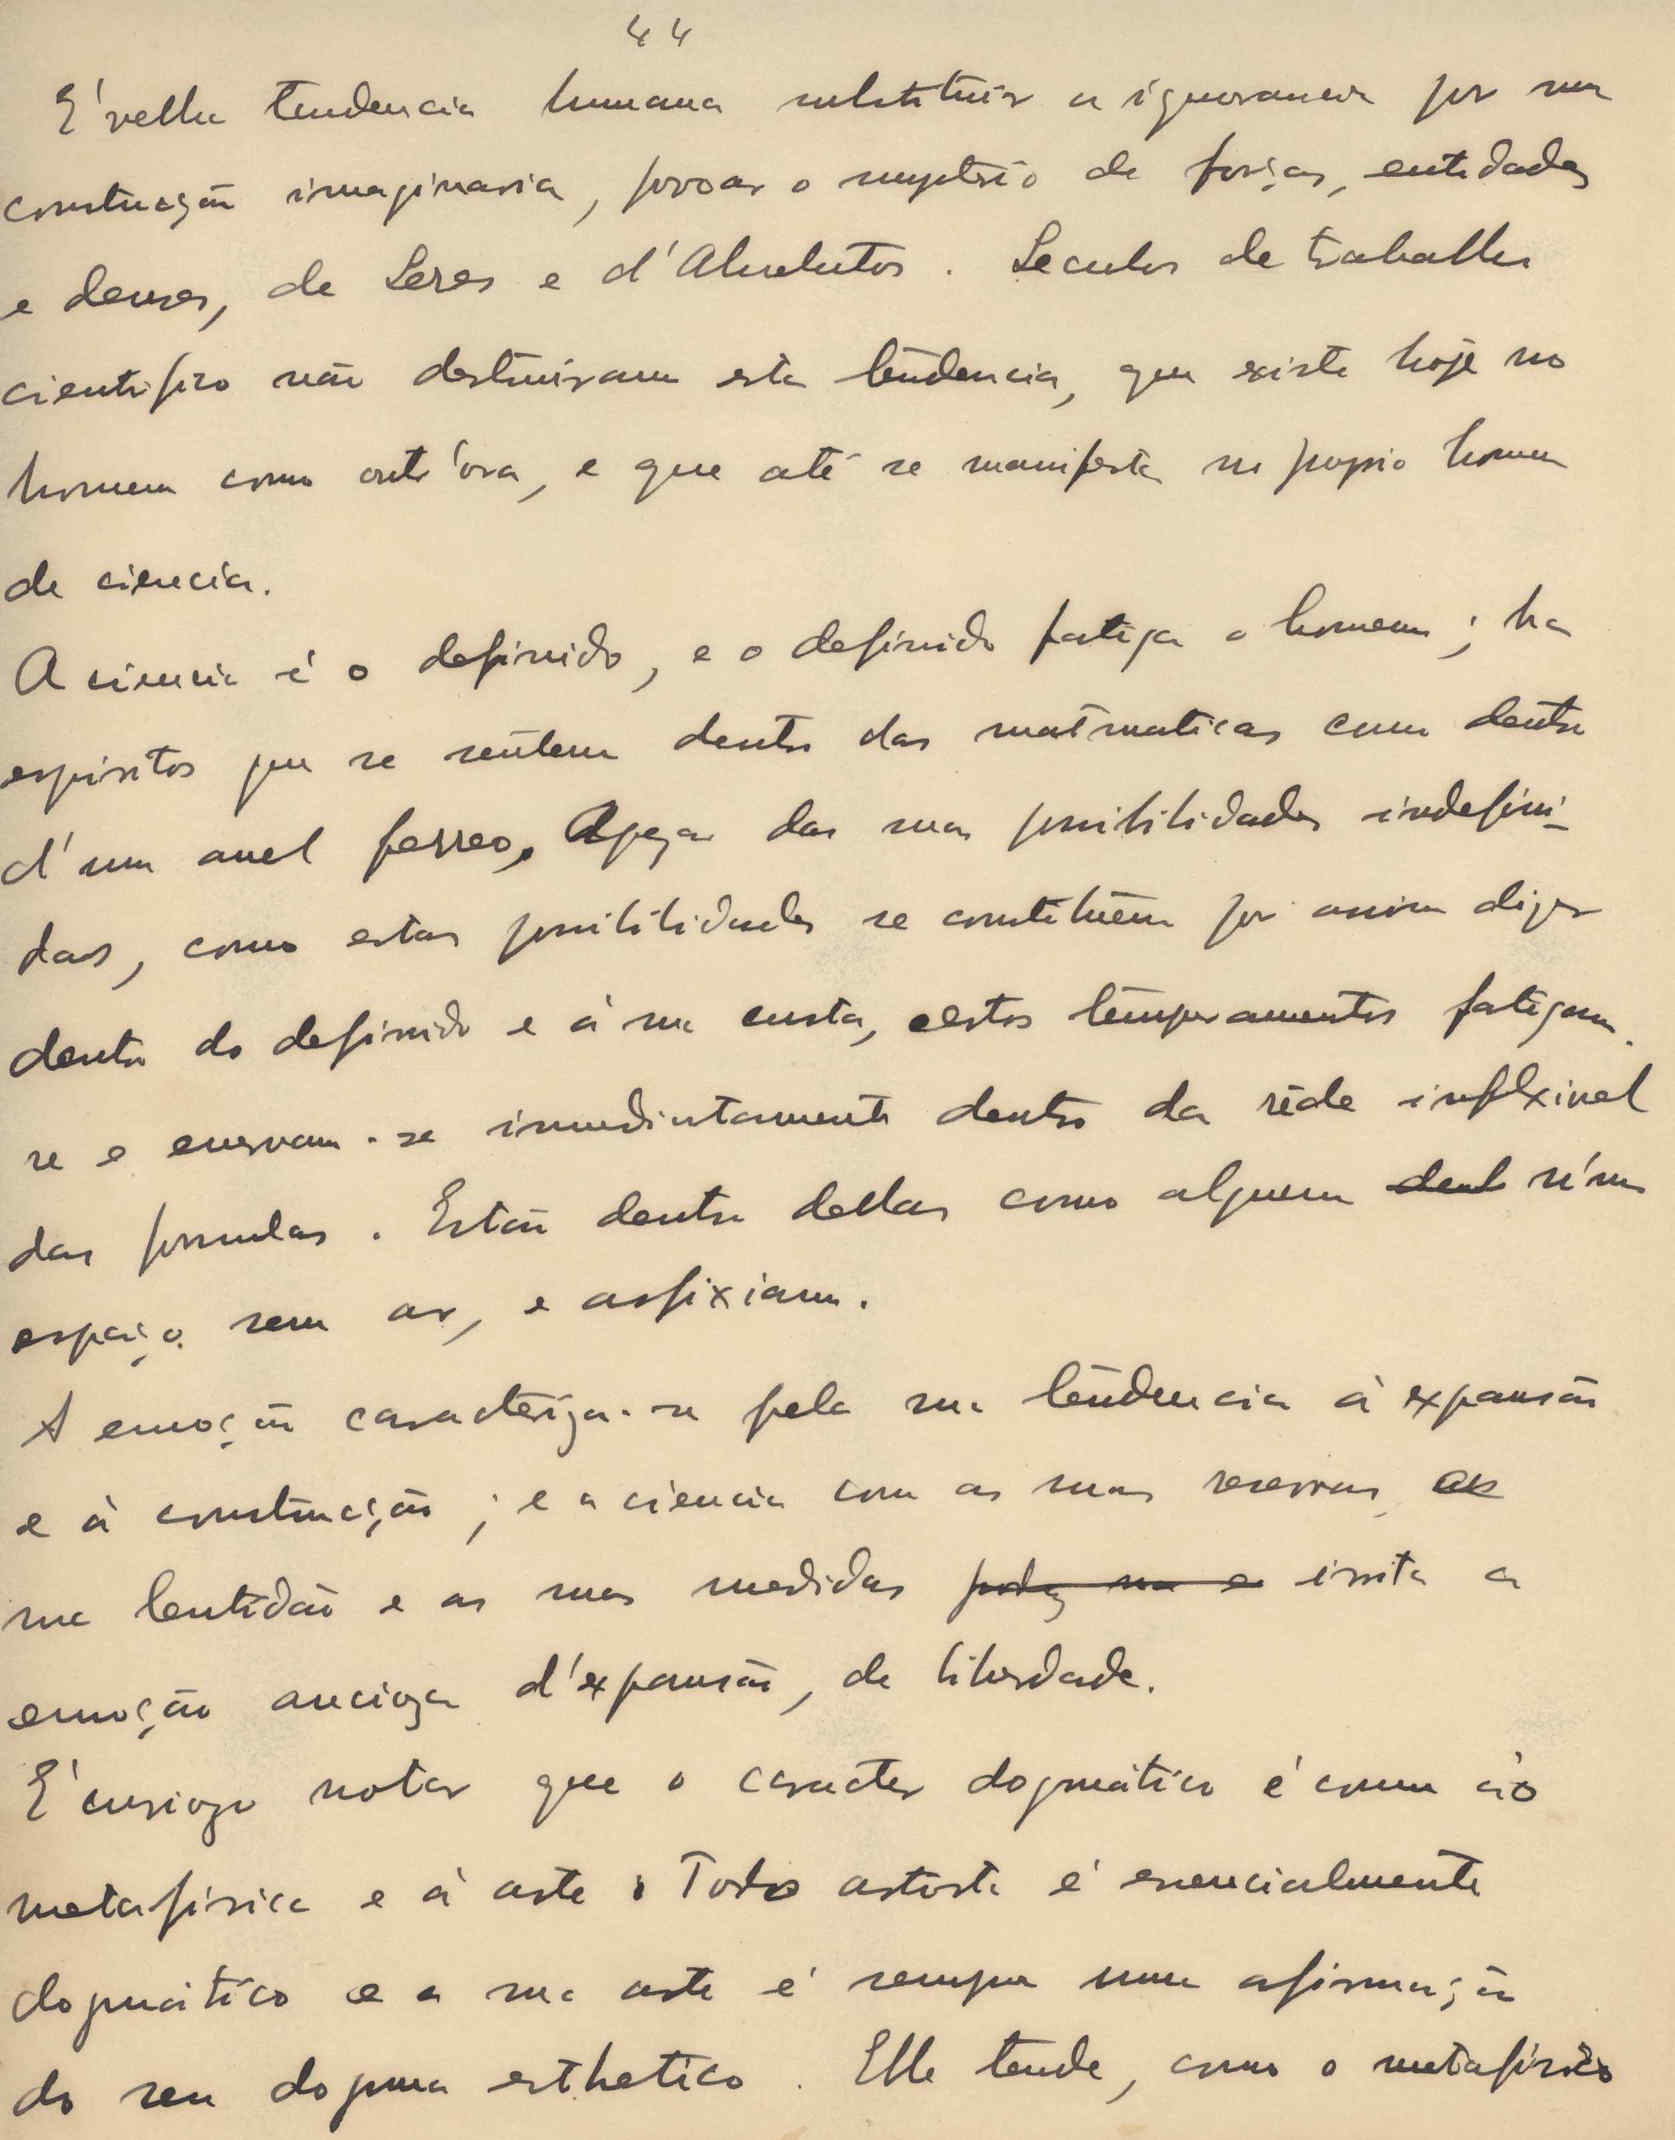 44
É velha tendencia humana substituir a ignorancia por uma
construcção imaginaria, povoar o mysterio de forças, entidades
e deuses, de Seres e d'Absolutos. Seculos de trabalho
cientifico não destruiram esta tendencia, que existe hoje no
homem como outr'ora, e que até se manifesta no proprio homem
de ciencia.
A ciencia é o definido, e o definido fatiga o homem; ha
espiritos que se sentem dentro das matematicas como dentro
d'um anel ferreo. Apezar das suas possibilidades indefini-
das, como estas possibilidades se constituem por assim dizer
dentro do definido e à sua custa, certos temperamentos fatigam-
se e enervam-se immediatamente dentro da rède inflexivel
das formulas. Estão dentro dellas como alguem dent n'um
espaço sem ar, e asfixiam.
A emoção caracteriza-se pela sua tendencia à expansão
e à construcção; e a ciencia com as suas reservas, as
sua lentidão e as suas medidas irrita a
emoçãoancioza d'expansão, de liberdade.
É curiozo notar que o caracter dogmático é comum áo
metafisico e à arte. Todo artista é esencialmente
dogmático e a sua arte é sempre uma afirmação
do seu dogma esthetico. Elle tende, como o metafisico